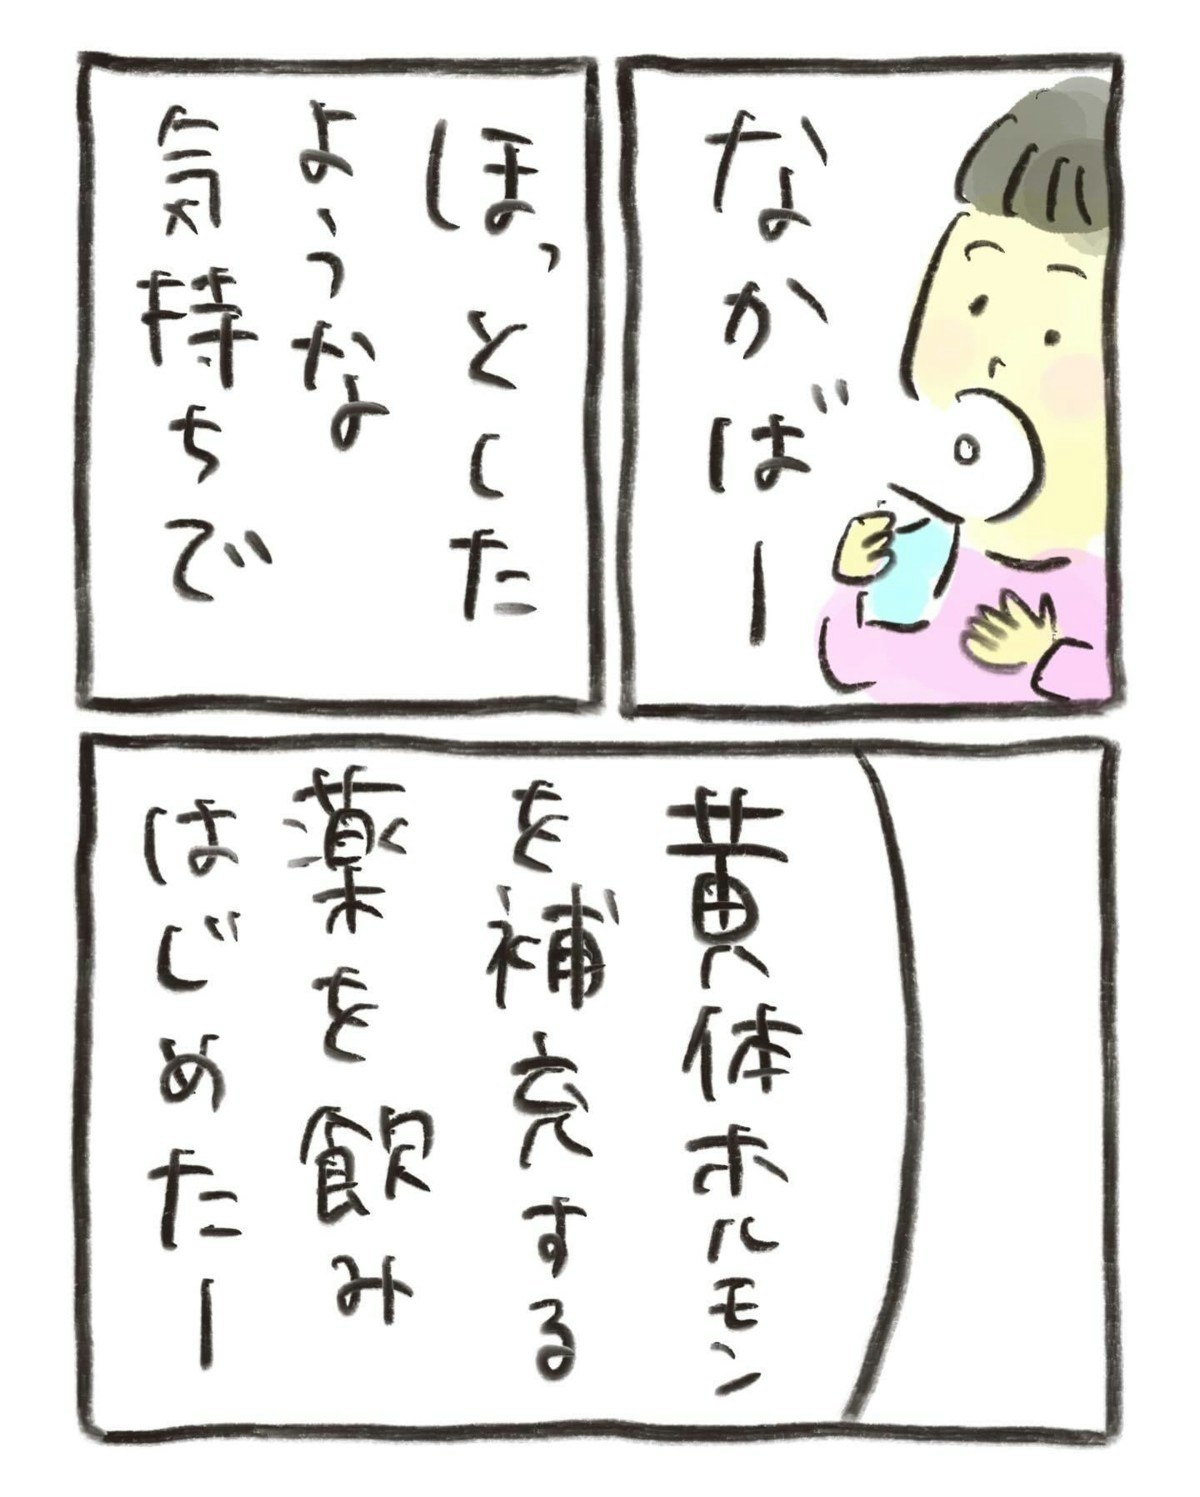 なかばー
ほっとした
ような
気持ちで
黄体ホルモン
を補充する
薬を飲み
はじめたー